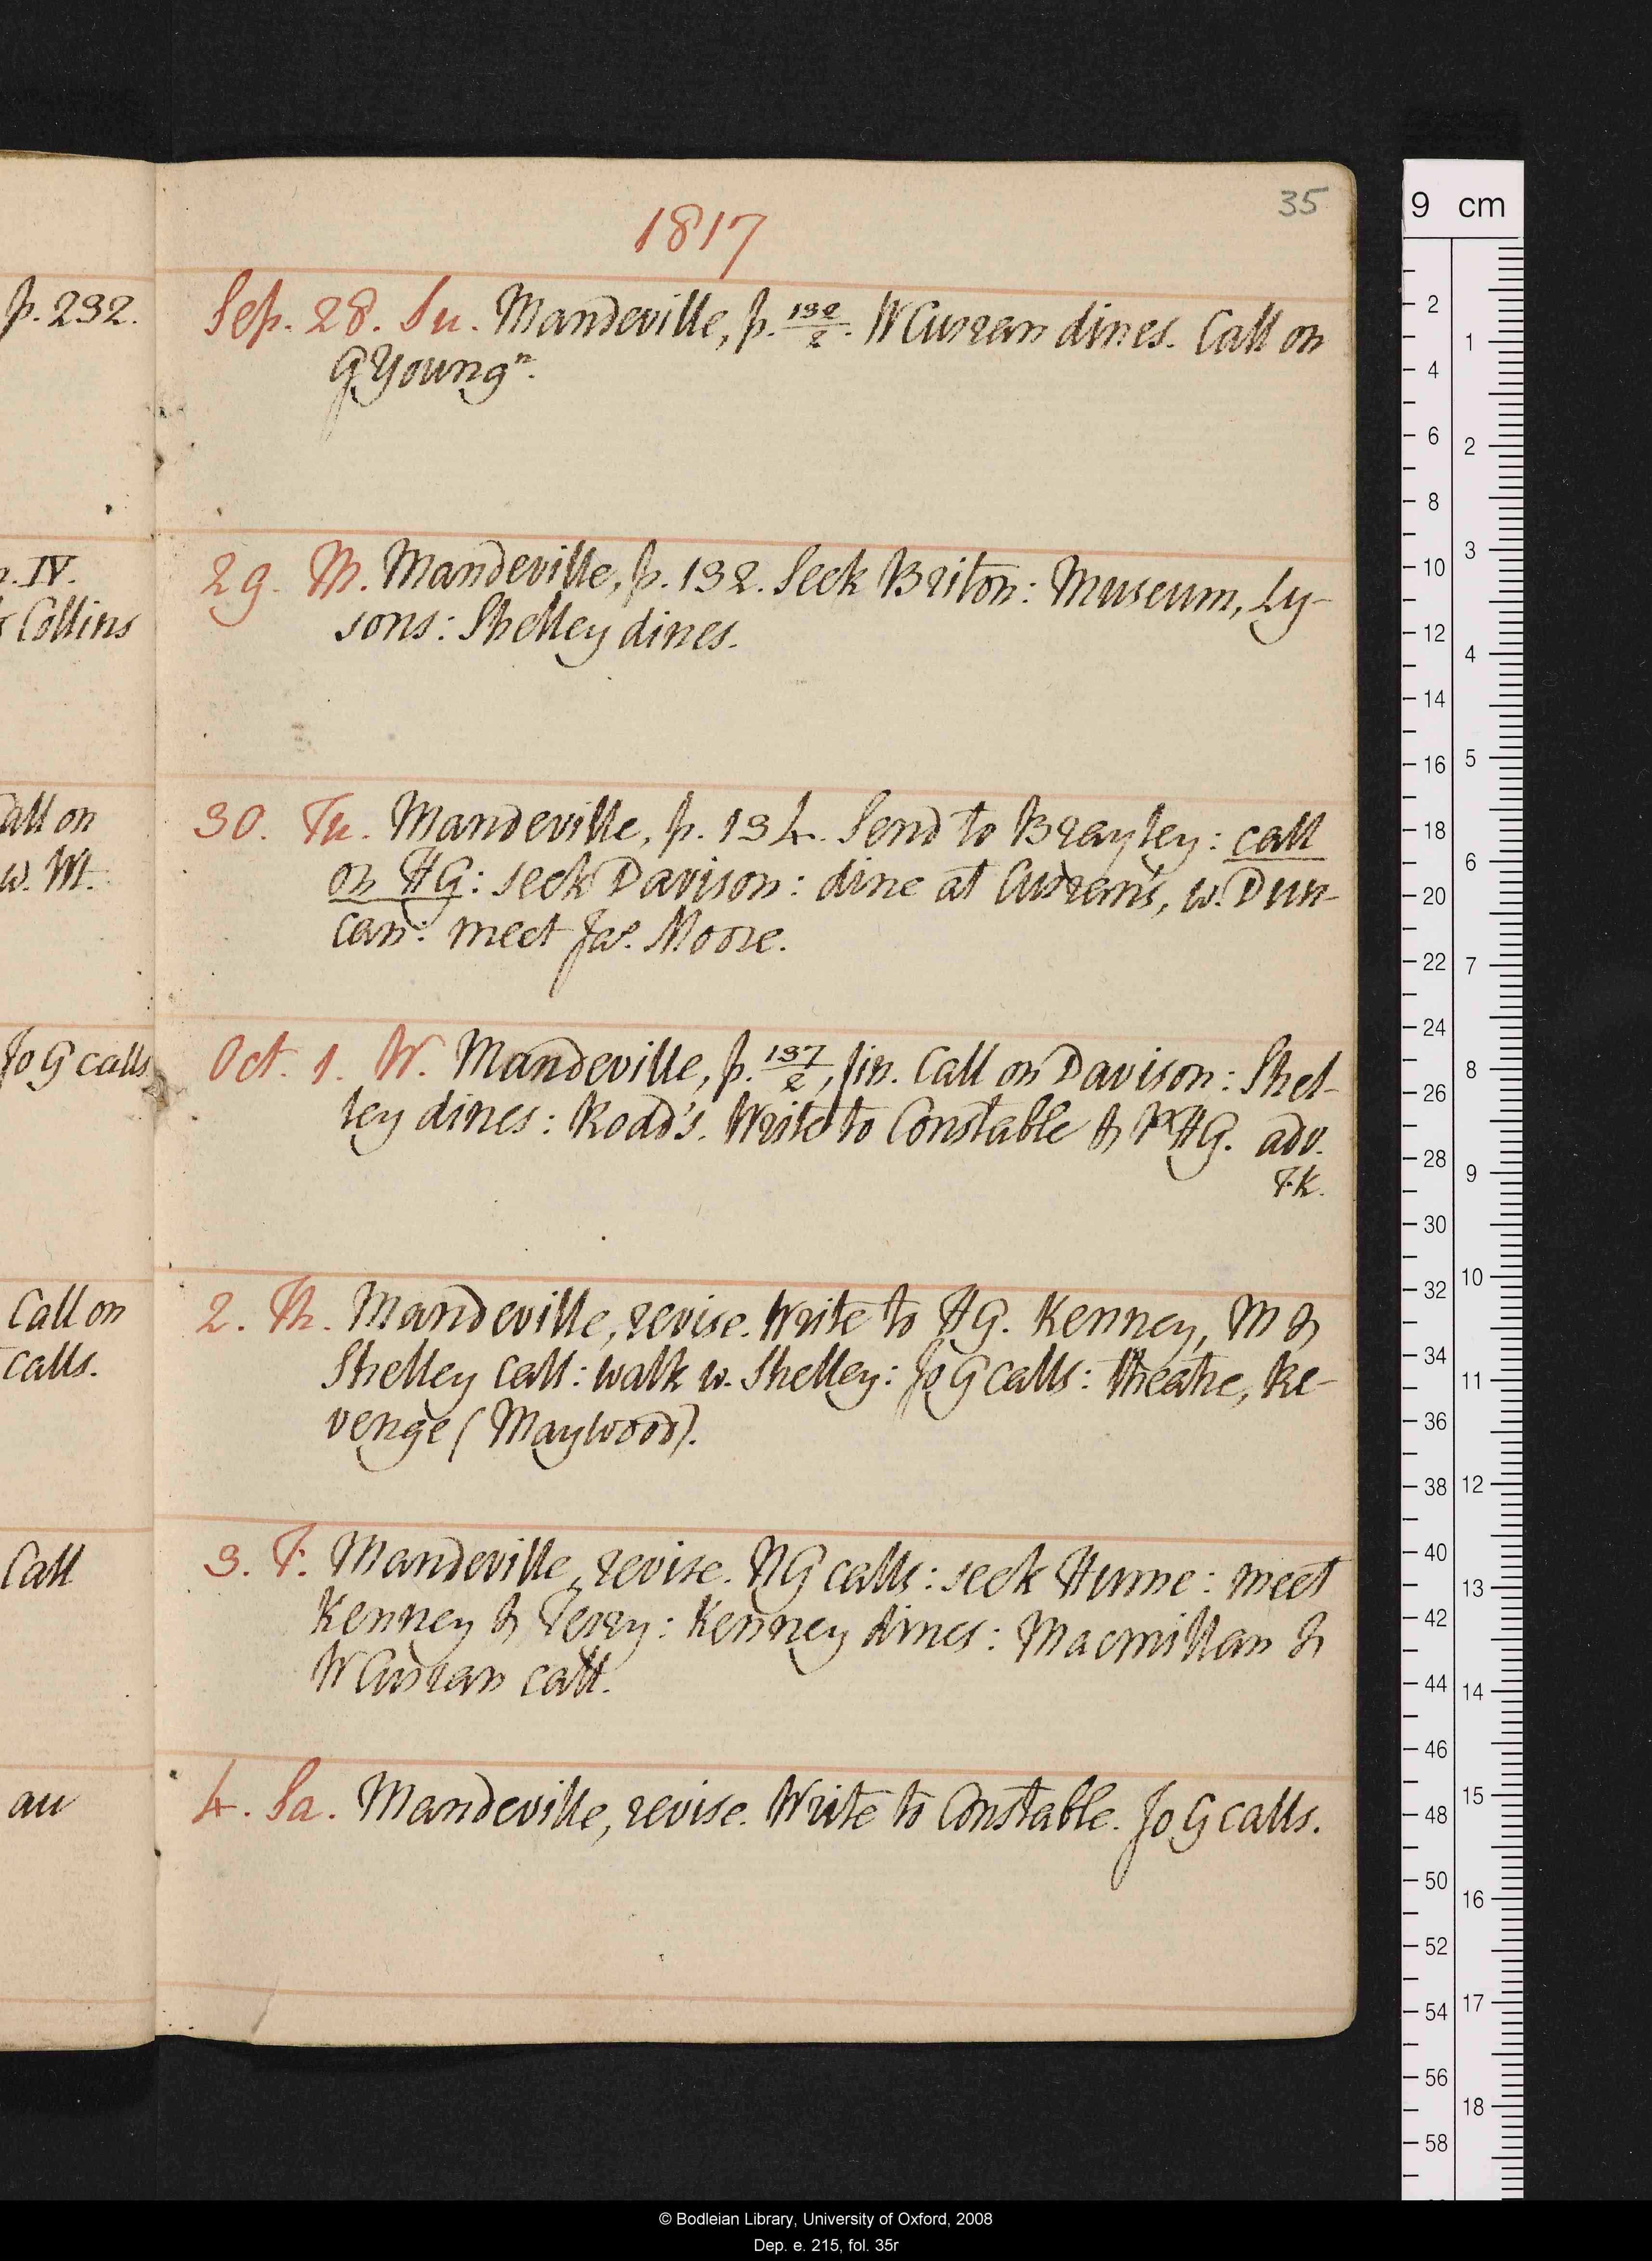 35
1817
p. 232.
Sep. 28. Su. Mandeville, p. 132/2. W Curran dines. Call on
G Youngⁿ.
n. IV.
& Collins
29. M. Mandeville, p. 132. Seek Briton: Museum, Ly-
sons: Shelley dines.
Call on
w. M.
30. Tu. Mandeville, p. 134. Send to Brayley: call
on HG: seek Davison: dine at Curran's, w. Dun-
can: meet Jaˢ. Moore.
Jo G calls
Oct. 1. W. Mandeville, p. 137/2, fin. Call on Davison: Shel-
ley dines: Rodd's. Write to Constable & HG. adv.
F.K.
Call on
calls.
2. Th. Mandeville, revise. Write to HG. Kenney, M &
Shelley call: walk w. Shelley: Jo G calls: theatre, Re-
venge (Maywood).
Call
3. F. Mandeville, revise. NG calls: seek Hume: meet
Kenney & Terry: Kenney dines: Macmillan &
W Curran call.
au
4. Sa. Mandeville, revise. Write to Constable. Jo G calls.
9 cm
2
1
4
6
2
8
10
3
12
4
14
16
5
18
6
20
22
7
24
26
8
28
9
30
32
10
34
11
36
38
12
40
13
42
44
14
46
15
48
50
16
52
54
17
56
18
58
© Bodleian Library, University of Oxford, 2008
Dep. e. 215, fol. 35r